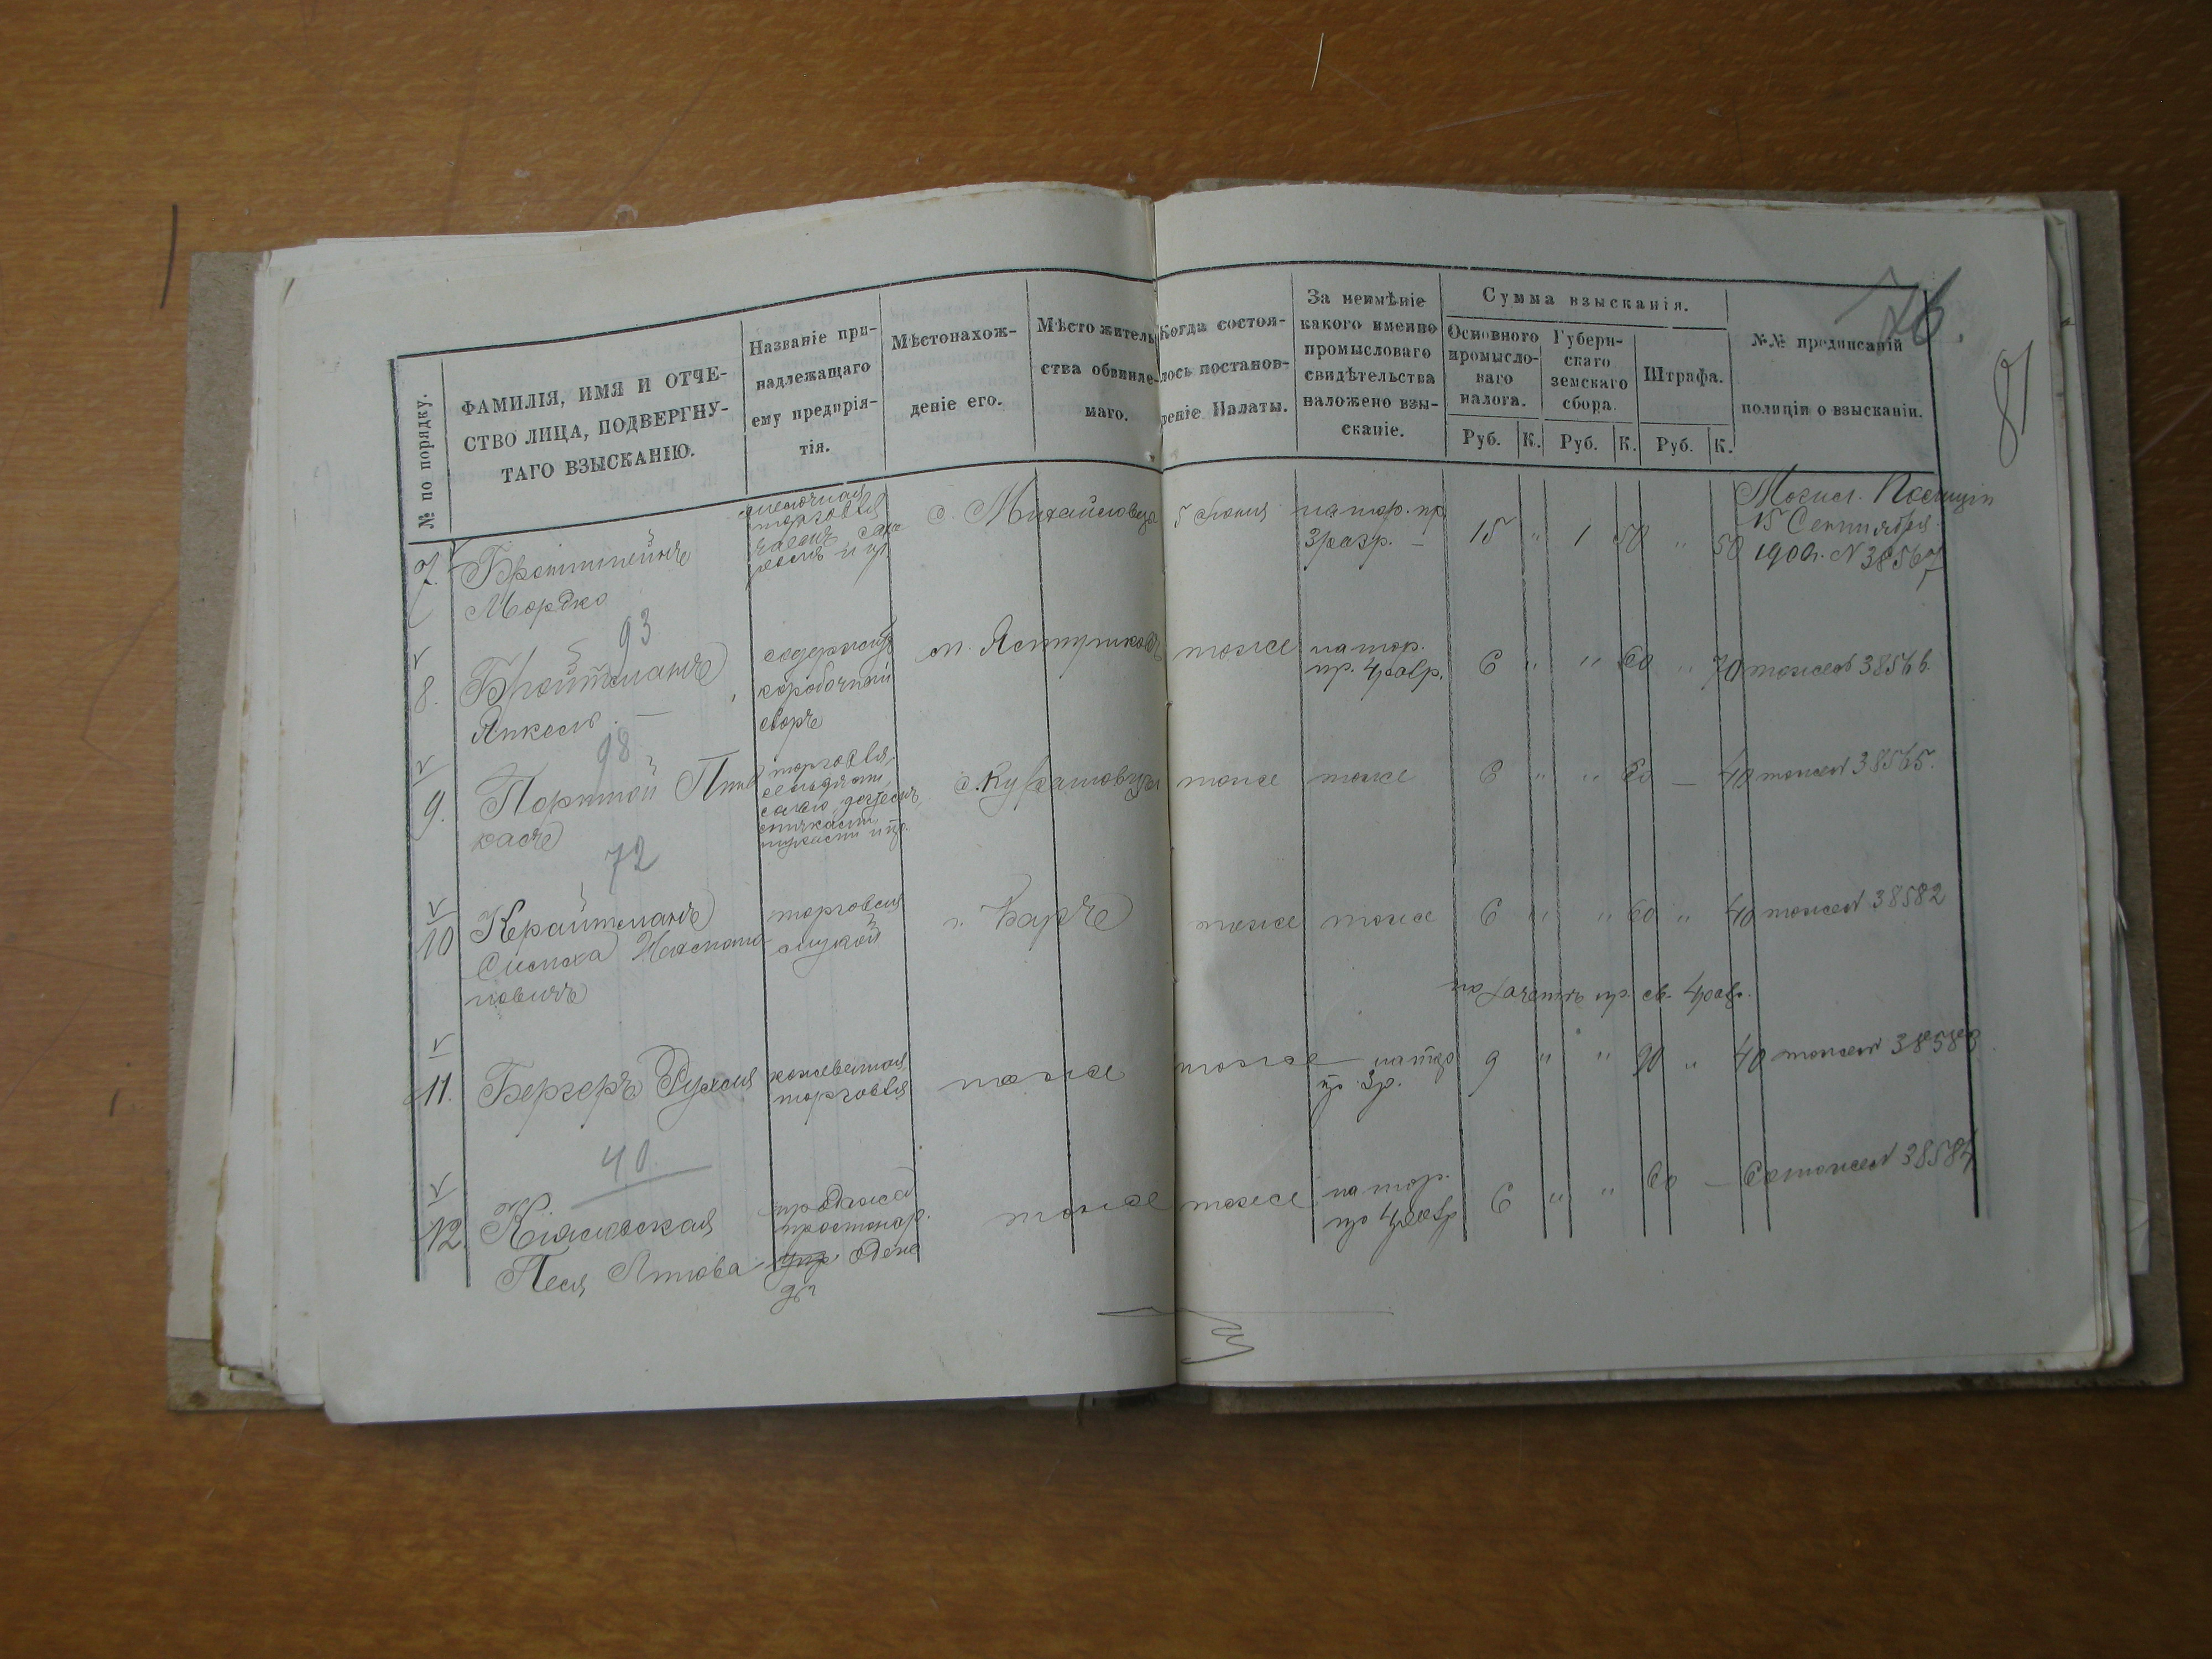 76.
81
№ по порядку.
ФАМИЛІЯ, ИМЯ И ОТЧЕ-
СТВО ЛИЦА, ПОДВЕРГНУ-
ТАГО ВЗЫСКАНІЮ.
Названіе при-
надлежащаго
ему предпрія-
тія.
Мѣстонахож-
деніе его.
Мѣсто житель
ства обвиняе-
маго.
Когда состоя-
лось постанов-
леніе Палаты.
За неимѣніе
какого именно
промысловаго
свидѣтельства
наложено взы-
сканіе.
Сумма взысканія.
Основного
промысло-
ваго
налога.
Губерн-
скаго
земскаго
сбора.
Штрафа.
Руб. К. Руб. К. Руб. К.
№№ предписаній
полиціи о взысканіи.
7. Бронштейнъ
Мордко
мелочная
торговля
чаемъ саха
ромъ и пр
с. Михайловцы
5 Іюня
на тор. пр
3 разр. —
15 " 1 50 " 50
Могил. Полиціи
15 Сентября
1900г. N 38567
93
8. Бройтманъ
Янкель. —
содержитъ
коробочный
сборъ
м. Ялтушковъ
тоже
на тор.
пр. 4 разр.
6 " " 60 " 70
тоже N 38566
98
9. Портной Пин
касъ
торговля
сельдями,
спичками
и пр.
с. Кукашовцы
тоже
тоже
6 " " 60 — 40
тоже N 38565.
72
10 Крайтманъ
Симха
новичъ
торговля
мукой
г. Баръ
тоже
тоже
6 " " 60 " 40
тоже N 38582
пр. св. 4 разр.
11. Бергеръ Рухля
кожевенная
торговля
тоже
тоже —
пр. 3 р.
9 " " 90 " 40
тоже N 38583
40
12. Кіямовская
Песя
продажа
простонар.
одеж
ды
тоже
тоже
на тор.
пр 4 разр
6 " " 60 — 60
тоже N 38584